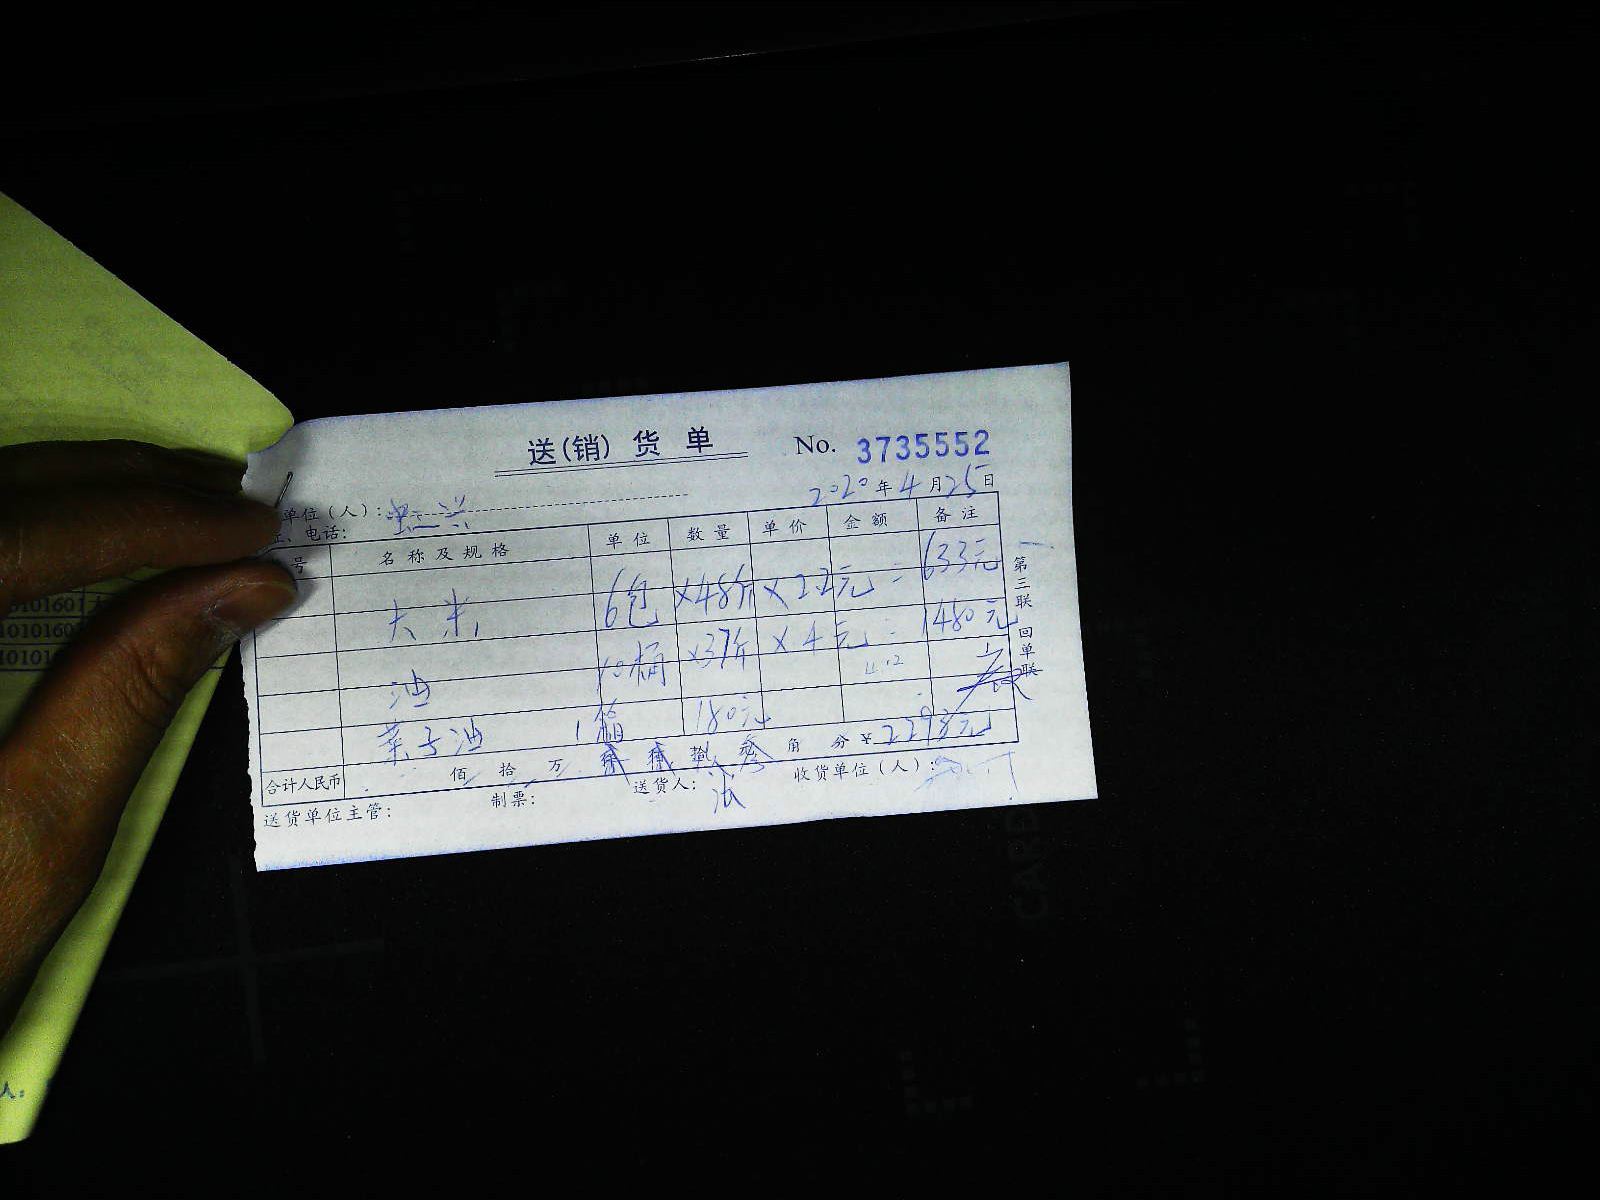 送(销)货单 No. 3735552
2020年4月25日
单位(人):
、电话:
号 名称及规格 单位 数量 单价 金额 备注
大米 6包 ×48斤 ×2.2元 = 633元
油 10桶 ×37斤 ×4元 = 1480元
菜子油 1箱 180元
合计人民币 佰 拾 万 角 分 ¥2293元
送货单位主管: 制票: 送货人: 收货单位(人):
第三联 回单联
0101601 大
010160
01016
人:
CARD